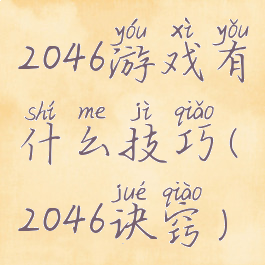 yóu xì yǒu
2046游戏有
shí me jì qiǎo
什么技巧(
jué qiào
2046诀窍)